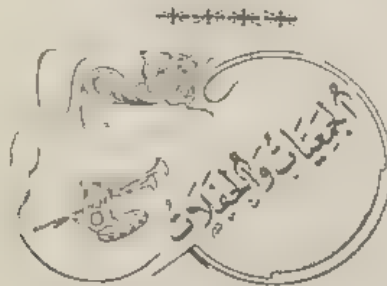 الجَمْعِيَّاتُ وَالحَفَلَات